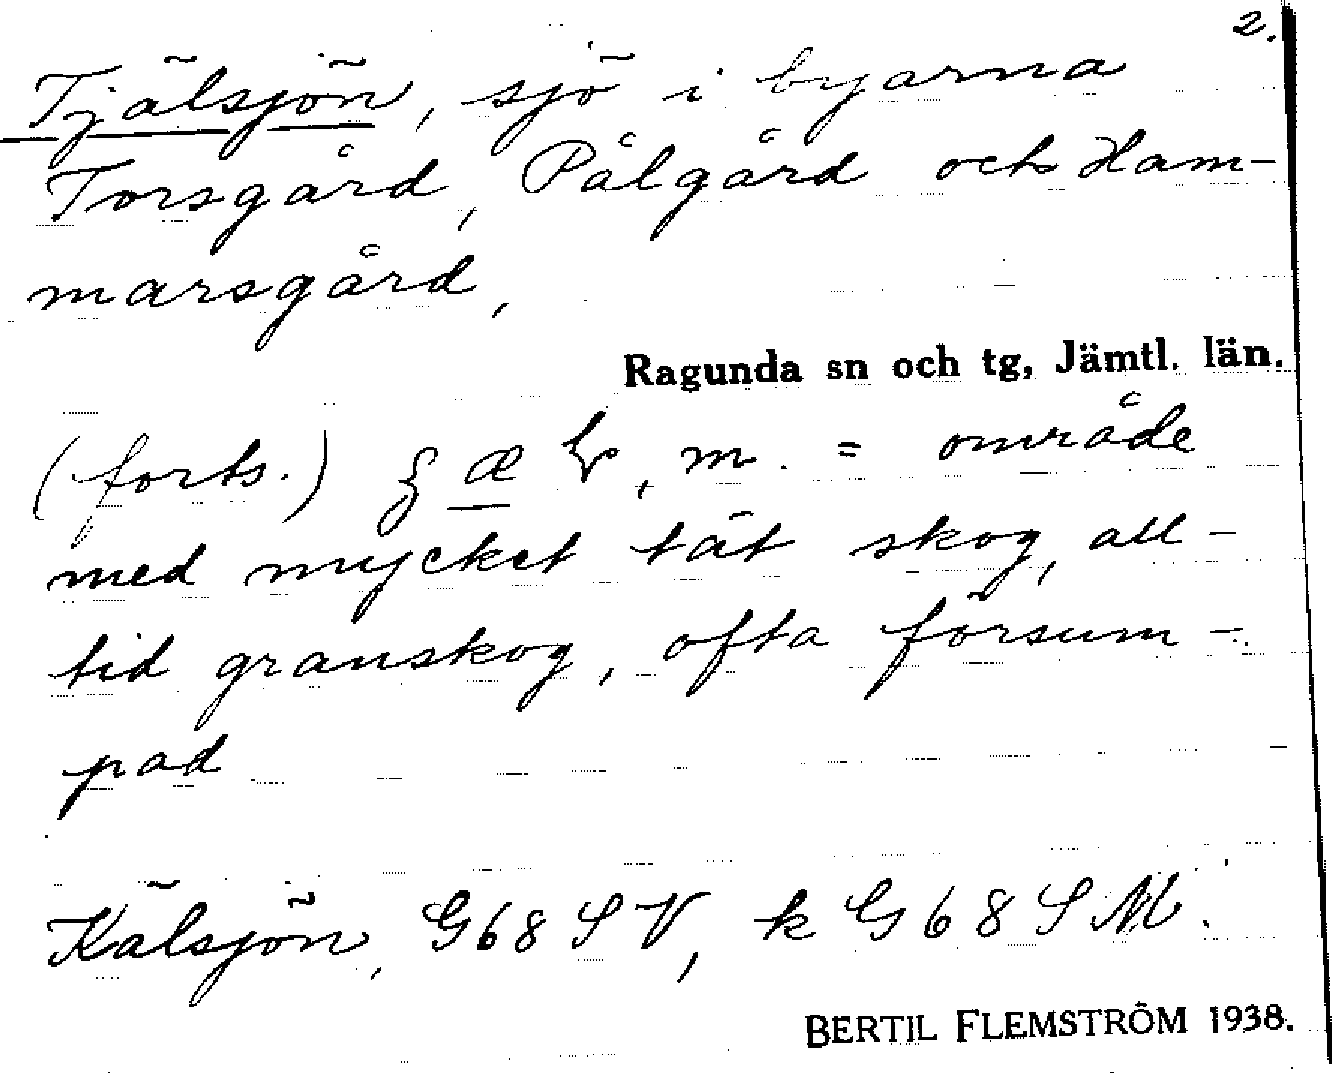 2.
Tjälsjön, sjö i byarna
Torsgård, Pålgård och Ham-
marsgård,
Ragunda sn och tg, Jämtl. län.
(forts.) , m. = område
med mycket tät skog, all-
tid granskog, ofta försum-
pad
Kälsjön, G68SV, k G68SM.
BERTIL FLEMSTRÖM 1938.